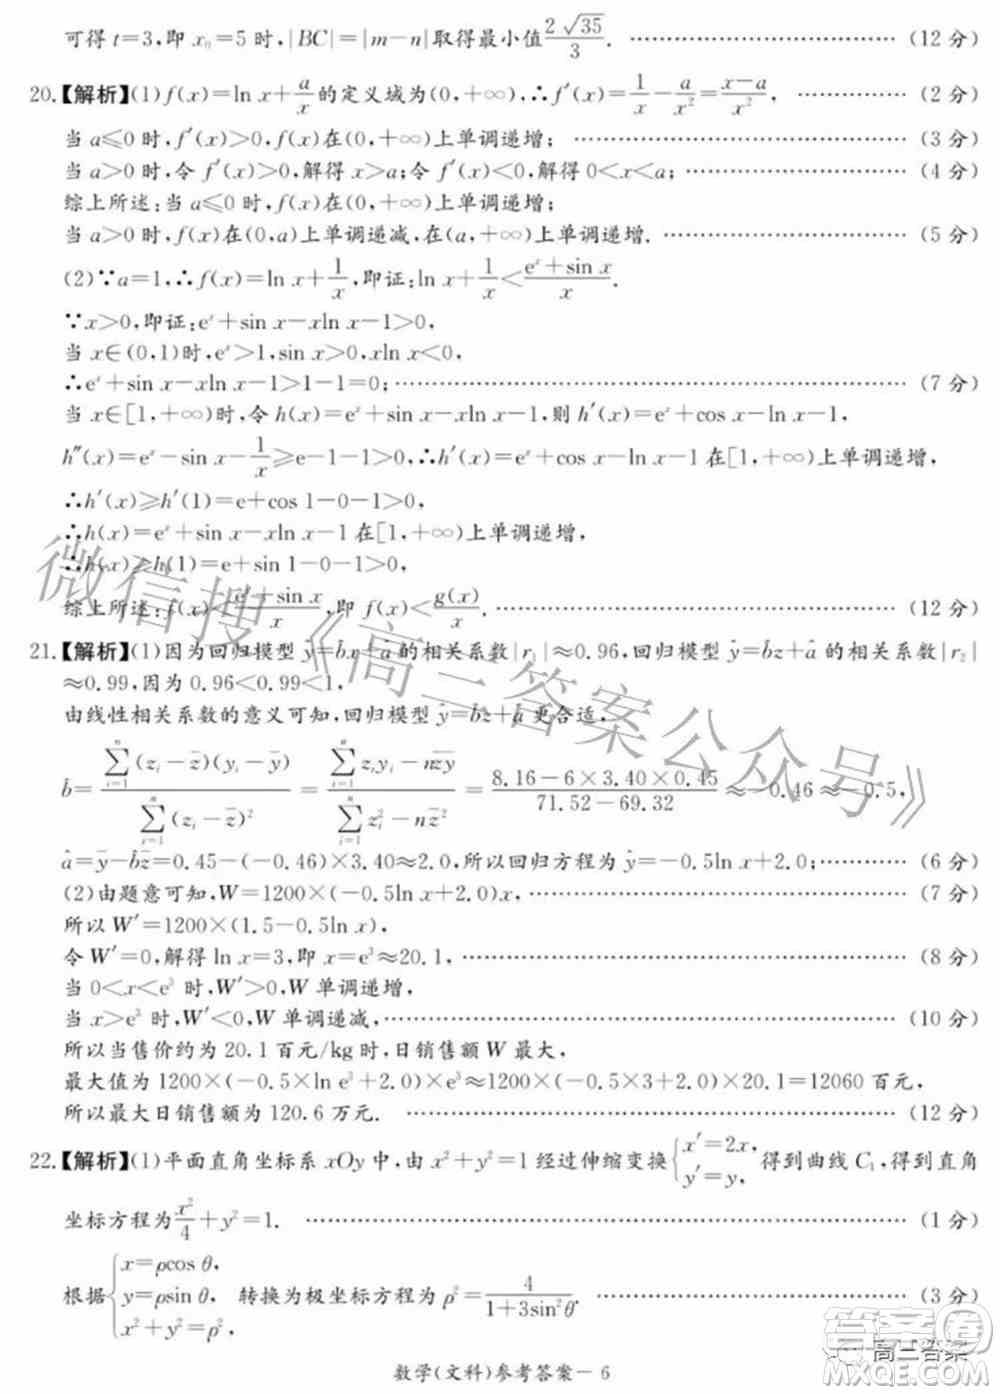 可得 t=3,即 xₙ=5 时,|BC|=|m-n|取得最小值 2√35/3. ………………(12 分)
20.【解析】(1)f(x)=ln x+a/x 的定义域为(0,+∞),∴f′(x)=1/x-a/x²=(x-a)/x², ………(2 分)
当 a⩽0 时,f′(x)>0,f(x)在(0,+∞)上单调递增; ………………(3 分)
当 a>0 时,令 f′(x)>0,解得 x>a;令 f′(x)<0,解得 0<x<a; ………………(4 分)
综上所述:当 a⩽0 时,f(x)在(0,+∞)上单调递增;
当 a>0 时,f(x)在(0,a)上单调递减,在(a,+∞)上单调递增. ………………(5 分)
(2)∵a=1,∴f(x)=ln x+1/x,即证:ln x+1/x<(eˣ+sin x)/x.
∵x>0,即证:eˣ+sin x-xln x-1>0,
当 x∈(0,1)时,eˣ>1,sin x>0,xln x<0,
∴eˣ+sin x-xln x-1>1-1=0; ………………(7 分)
当 x∈[1,+∞)时,令 h(x)=eˣ+sin x-xln x-1,则 h′(x)=eˣ+cos x-ln x-1,
h″(x)=eˣ-sin x-1/x⩾e-1-1>0,∴h′(x)=eˣ+cos x-ln x-1 在[1,+∞)上单调递增,
∴h′(x)⩾h′(1)=e+cos 1-0-1>0,
∴h(x)=eˣ+sin x-xln x-1 在[1,+∞)上单调递增,
∴h(x)⩾h(1)=e+sin 1-0-1>0,
综上所述:f(x)<(eˣ+sin x)/x,即 f(x)<g(x)/x. ………………(12 分)
21.【解析】(1)因为回归模型 ŷ=b̂x+â 的相关系数|r₁|≈0.96,回归模型 ŷ=b̂z+â 的相关系数|r₂|
≈0.99,因为 0.96<0.99<1,
由线性相关系数的意义可知,回归模型 ŷ=b̂z+â 更合适,
b̂=∑ⁿᵢ₌₁(zᵢ-z̄)(yᵢ-ȳ)/∑ⁿᵢ₌₁(zᵢ-z̄)²=(∑ⁿᵢ₌₁zᵢyᵢ-nz̄ȳ)/(∑ⁿᵢ₌₁zᵢ²-nz̄²)=(8.16-6×3.40×0.45)/(71.52-69.32)≈-0.46≈-0.5,
â=ȳ-b̂z̄=0.45-(-0.46)×3.40≈2.0,所以回归方程为 ŷ=-0.5ln x+2.0; ………(6 分)
(2)由题意可知,W=1200×(-0.5ln x+2.0)x, ………………(7 分)
所以 W′=1200×(1.5-0.5ln x),
令 W′=0,解得 ln x=3,即 x=e³≈20.1, ………………(8 分)
当 0<x<e³ 时,W′>0,W 单调递增,
当 x>e³ 时,W′<0,W 单调递减, ………………(10 分)
所以当售价约为 20.1 百元/kg 时,日销售额 W 最大,
最大值为 1200×(-0.5×ln e³+2.0)×e³≈1200×(-0.5×3+2.0)×20.1=12060 百元,
所以最大日销售额为 120.6 万元. ………………(12 分)
22.【解析】(1)平面直角坐标系 xOy 中,由 x²+y²=1 经过伸缩变换{x′=2x, y′=y,得到曲线 C₁,得到直角
坐标方程为 x²/4+y²=1. ………………(1 分)
根据{x=ρcos θ, y=ρsin θ, x²+y²=ρ², 转换为极坐标方程为 ρ²=4/(1+3sin²θ). ………………(3 分)
数学(文科)参考答案- 6
微信搜《高三答案公众号》
答案圈
高三答案